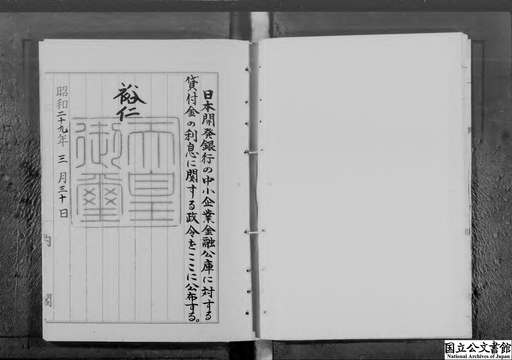 日本開発銀行の中小企業金融公庫に対する
貸付金の利息に関する政令をここに公布する。
裕仁
天皇御璽
昭和二十九年三月三十日
内閣
国立公文書館
National Archives of Japan